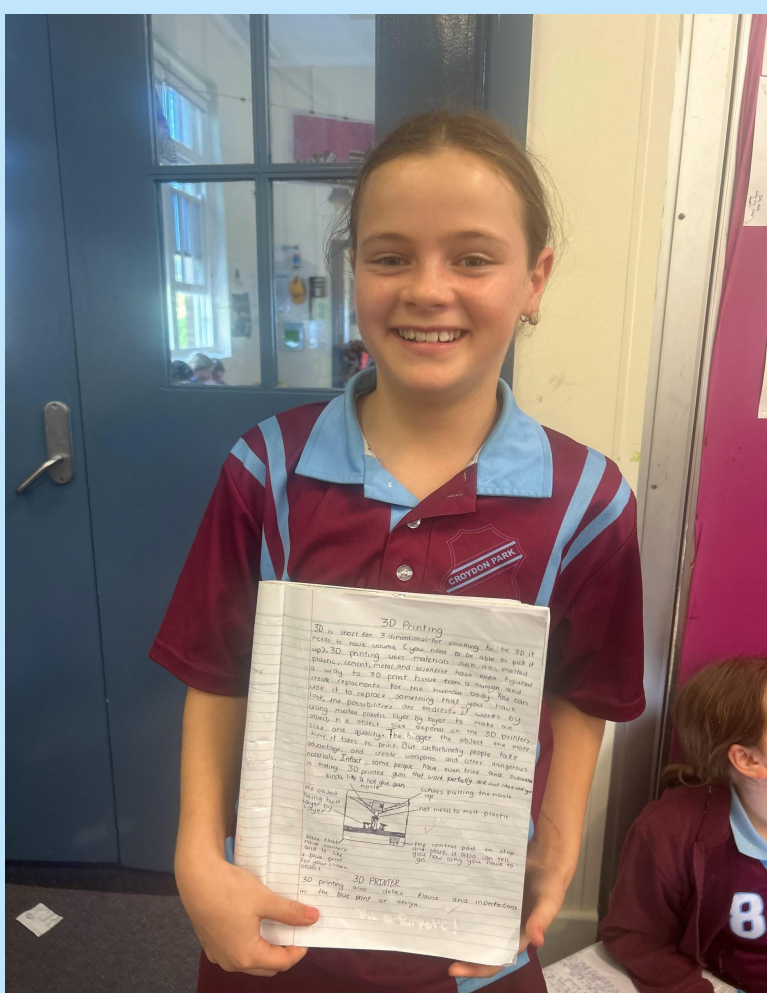 CROYDON PARK
3D Printing
3D is short for 3 dimentional-for something to be 3D it
needs to have volume (you need to be able to pick it
up). 3D printing uses materials such as: melted
plastic, cement, metal and scientist have even figured
a way to 3D print tissue from a human and
create replacments for the human body. You can
use it to replace something that you have
lost, the possibilities are endless. It works by
using melted plastic layer by layer to make an
object, the object size depends on the 3D printers
size and quality. The bigger the object the more
time it takes to print. But unfortunetly people take
advantage, and create weapons and other dangerous
materials. Infact, some people have even tried and
in making 3D printed guns that work perfectly and just like real
kinda like a hot glue gun.
nozzle
the object
being built
layer by
layer
pulling the nozzle
up
hot metal to melt plastic
base that
have
and it like
a blue print
for your
object
the control pad to stop
and start, it also can tell
you how long you have to
go
3D PRINTER
3D printing also detec and
in the blue print or design.
8